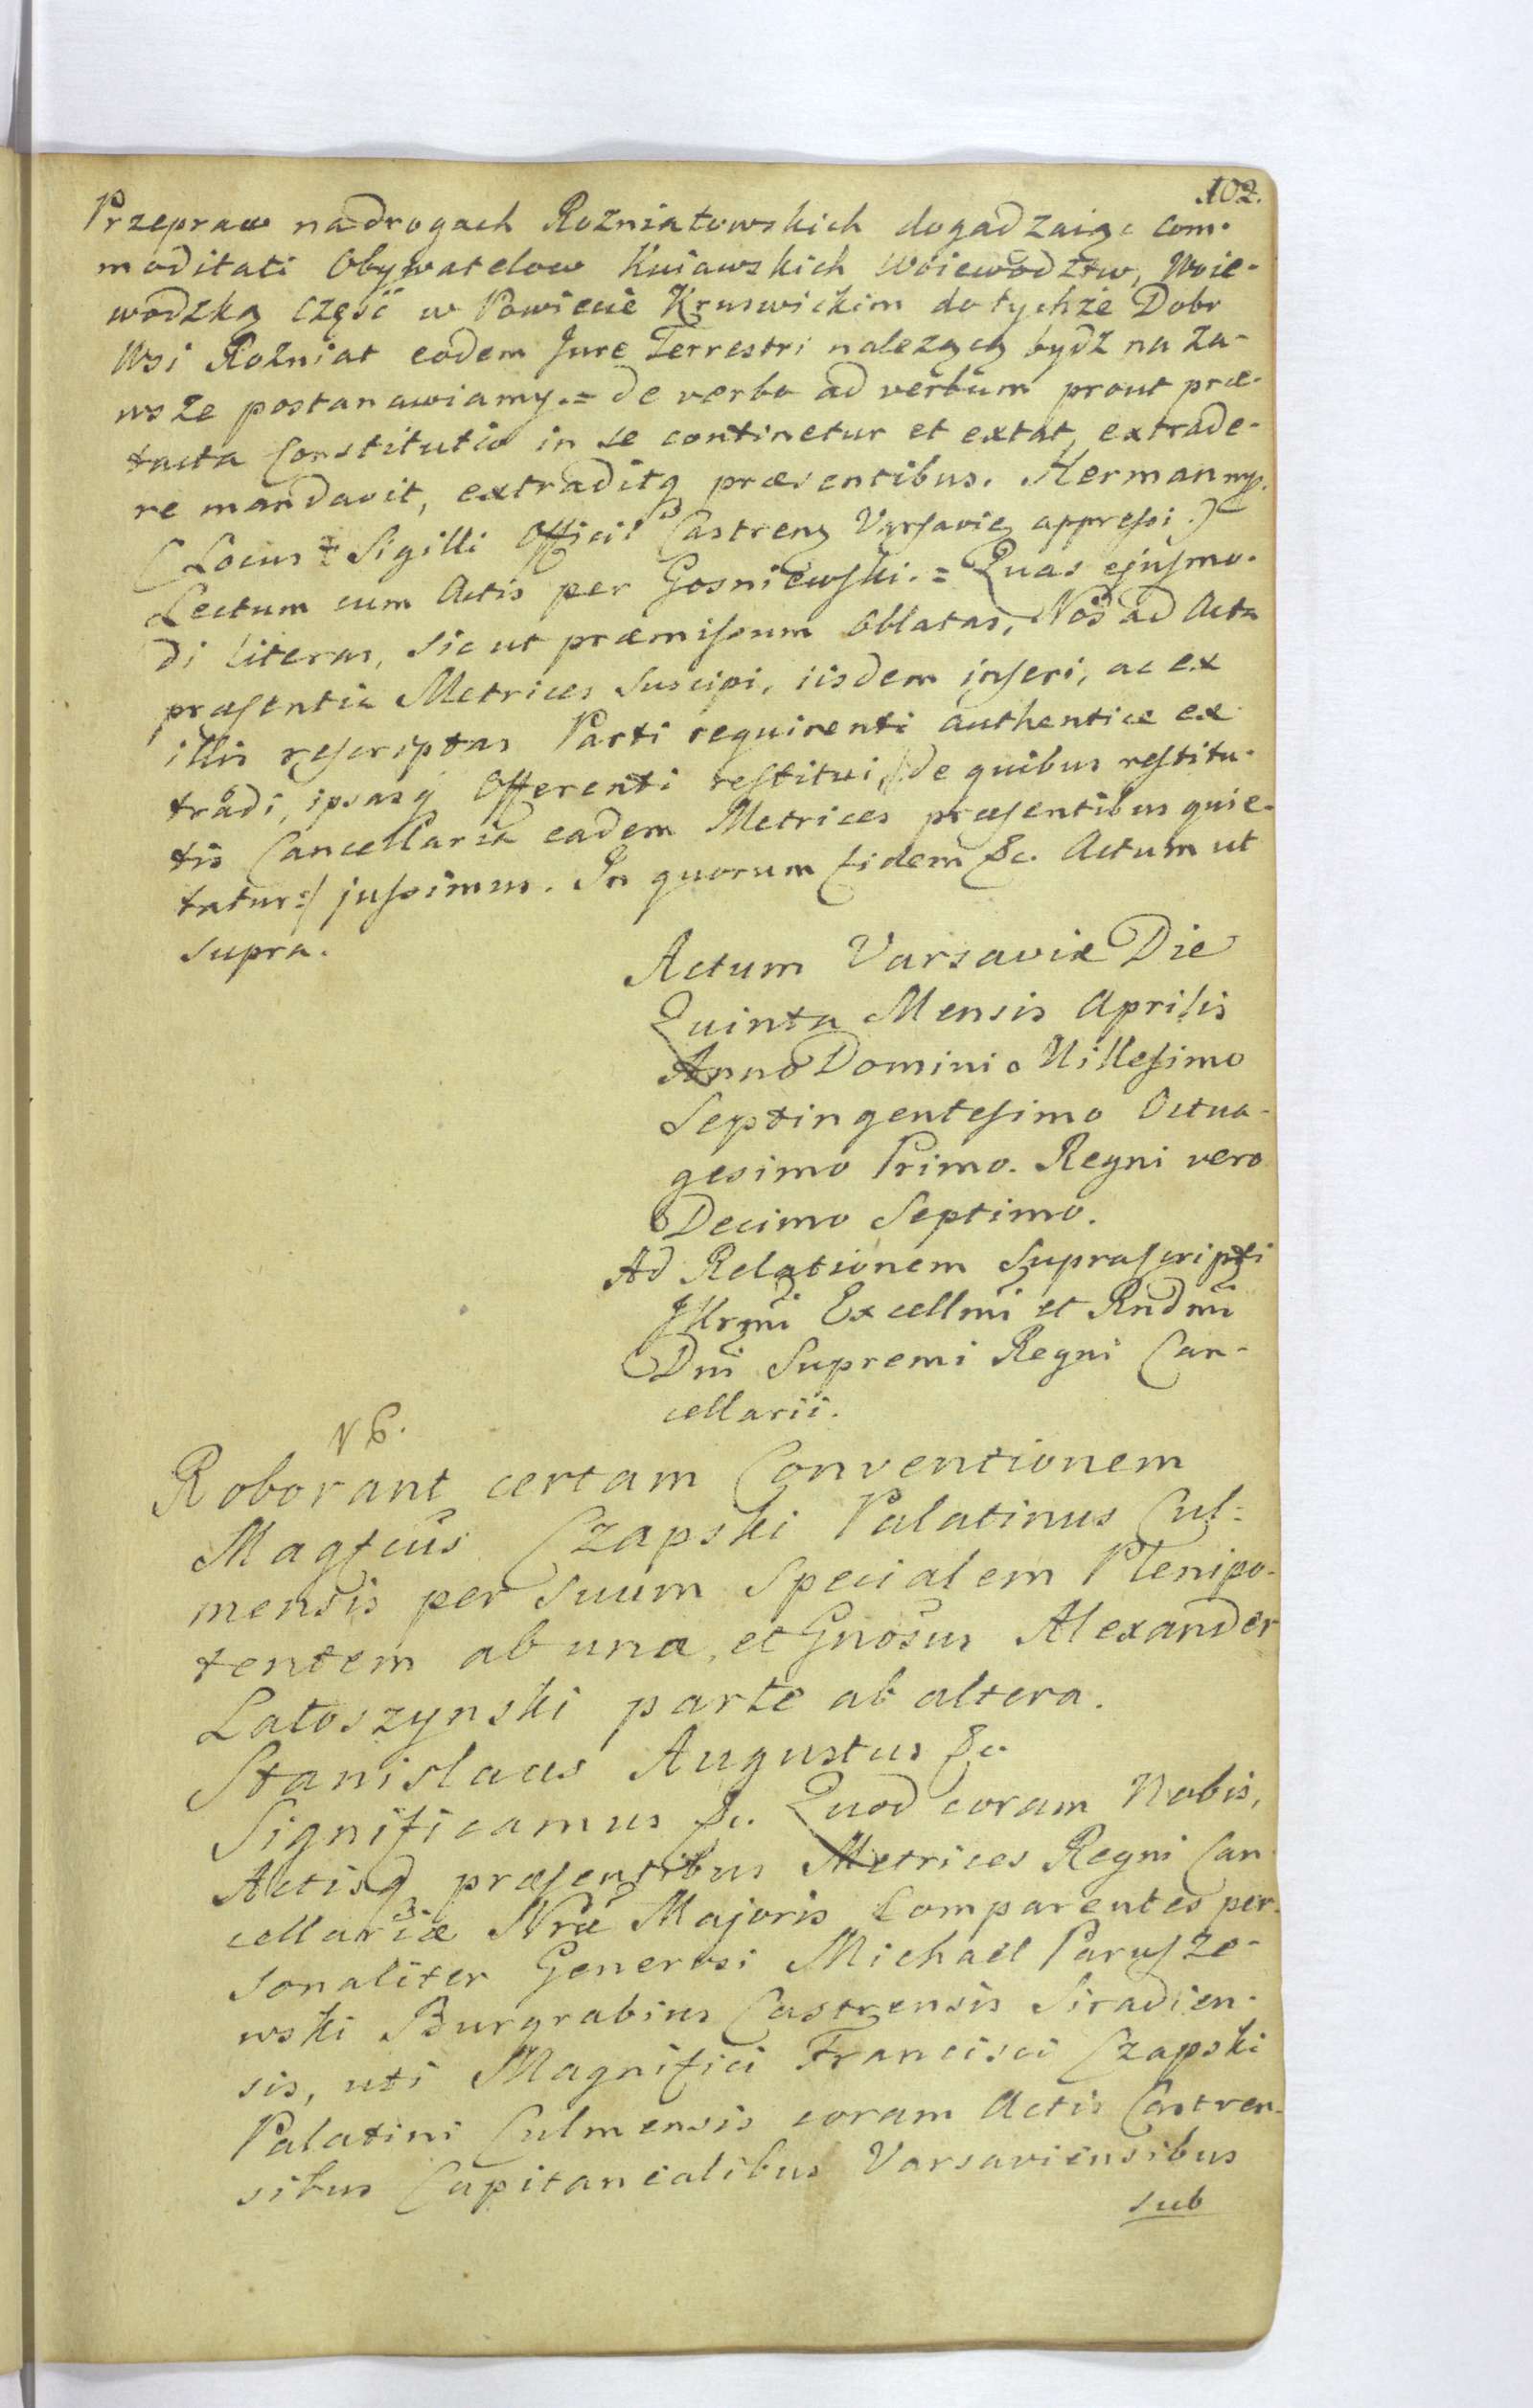 102.
Przepraw na drogach Rozniatowskich dogadzaiąc com-
moditati Obywatelow Kuiawskich Woiewodztw, Woie-
wodzką część w Powiecie Kruswickim do tychże Dobr
Wsi Rozniat eodem Jure Terrestri nalezącą bydz na za-
wsze postanawiamy.= de verbo ad verbum prout præ-
tacta Constitutio in se continetur et extat, extrade-
re mandavit, extraditq præsentibus. Hermanny.
(Locus Sigilli Officii Castren Varsavien appressi.)
Lectum cum Actis per Gosniewski.= Quas ejusmo-
di literas, sic ut præmissum oblatas, Nos ad Acta
præsentia Metrices suscipi, iisdem inseri, ac ex
illis rescriptas Parti requirenti authentice ex-
tradi, ipsasq Offerenti restitui /:de quibus restitu-
tis Cancellaria eadem Metrices præsentibus quie-
tatur:/ jussimus. In quorum fidem &c. Actum ut
supra.
Actum Varsaviæ Die
Quinta Mensis Aprilis
Anno Domini Millesimo
Septingentesimo Octua-
gesimo Primo. Regni vero
Decimo Septimo.
Ad Relationem Suprascripti
Illrmi Excellmi et Rndmi
Dni Supremi Regni Can-
cellarii.
Roborant certam Conventionem
Magfcus Czapski Palatinus Cul-
mensis per suum specialem Plenipo-
tentem ab una, et Gnosus Alexander
Latoszynski parte ab altera.
Stanislaus Augustus &c
Significamus &c. Quod coram Nobis,
Actisq præsentibus Metrices Regni Can-
cellariæ Nræ Majoris Comparentes per-
sonaliter Generosi Michael Parusze-
wski Burgrabius Castrensis Siradien-
sis, uti Magnifici Francisci Czapski
Palatini Culmensis coram Actis Castren-
sibus Capitanealibus Varsaviensibus
sub